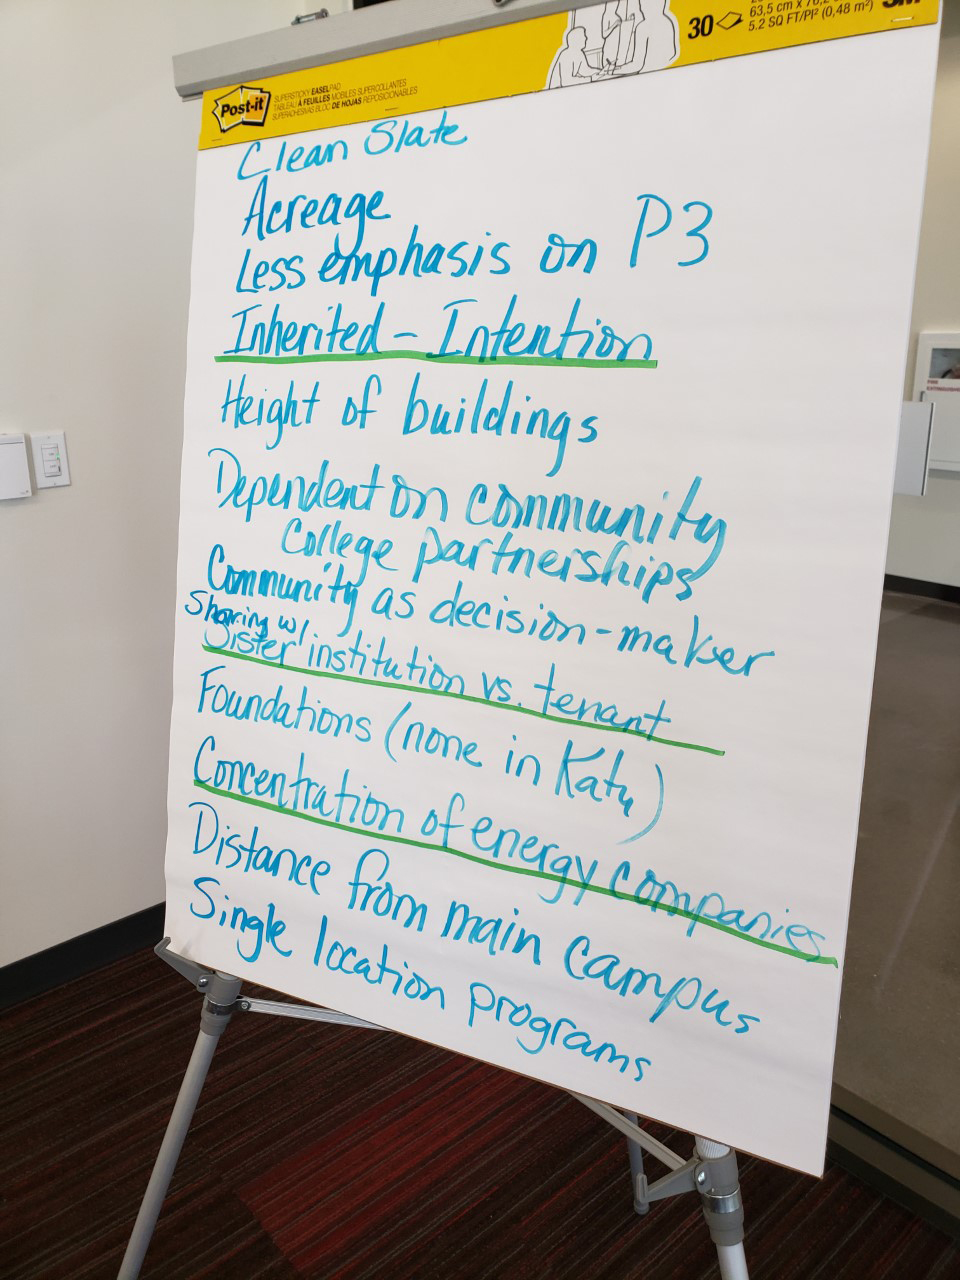 30
63,5 cm x 76,2
5.2 SQ FT/PI² (0,48 m²)
3M
Post-it
SUPERSTICKY EASEL PAD
TABLEAU À FEUILLES MOBILES SUPER COLLANTES
SUPERADHESIVAS BLOC DE HOJAS REPOSICIONABLES
Clean Slate
Acreage
Less emphasis on P3
Inherited - Intention
Height of buildings
Dependent on community
College partnerships
Community as decision-maker
Sharing w/
Sister institution vs. tenant
Foundations (none in Katy)
Concentration of energy companies
Distance from main campus
Single location programs
FIRE
EXTINGUISHER